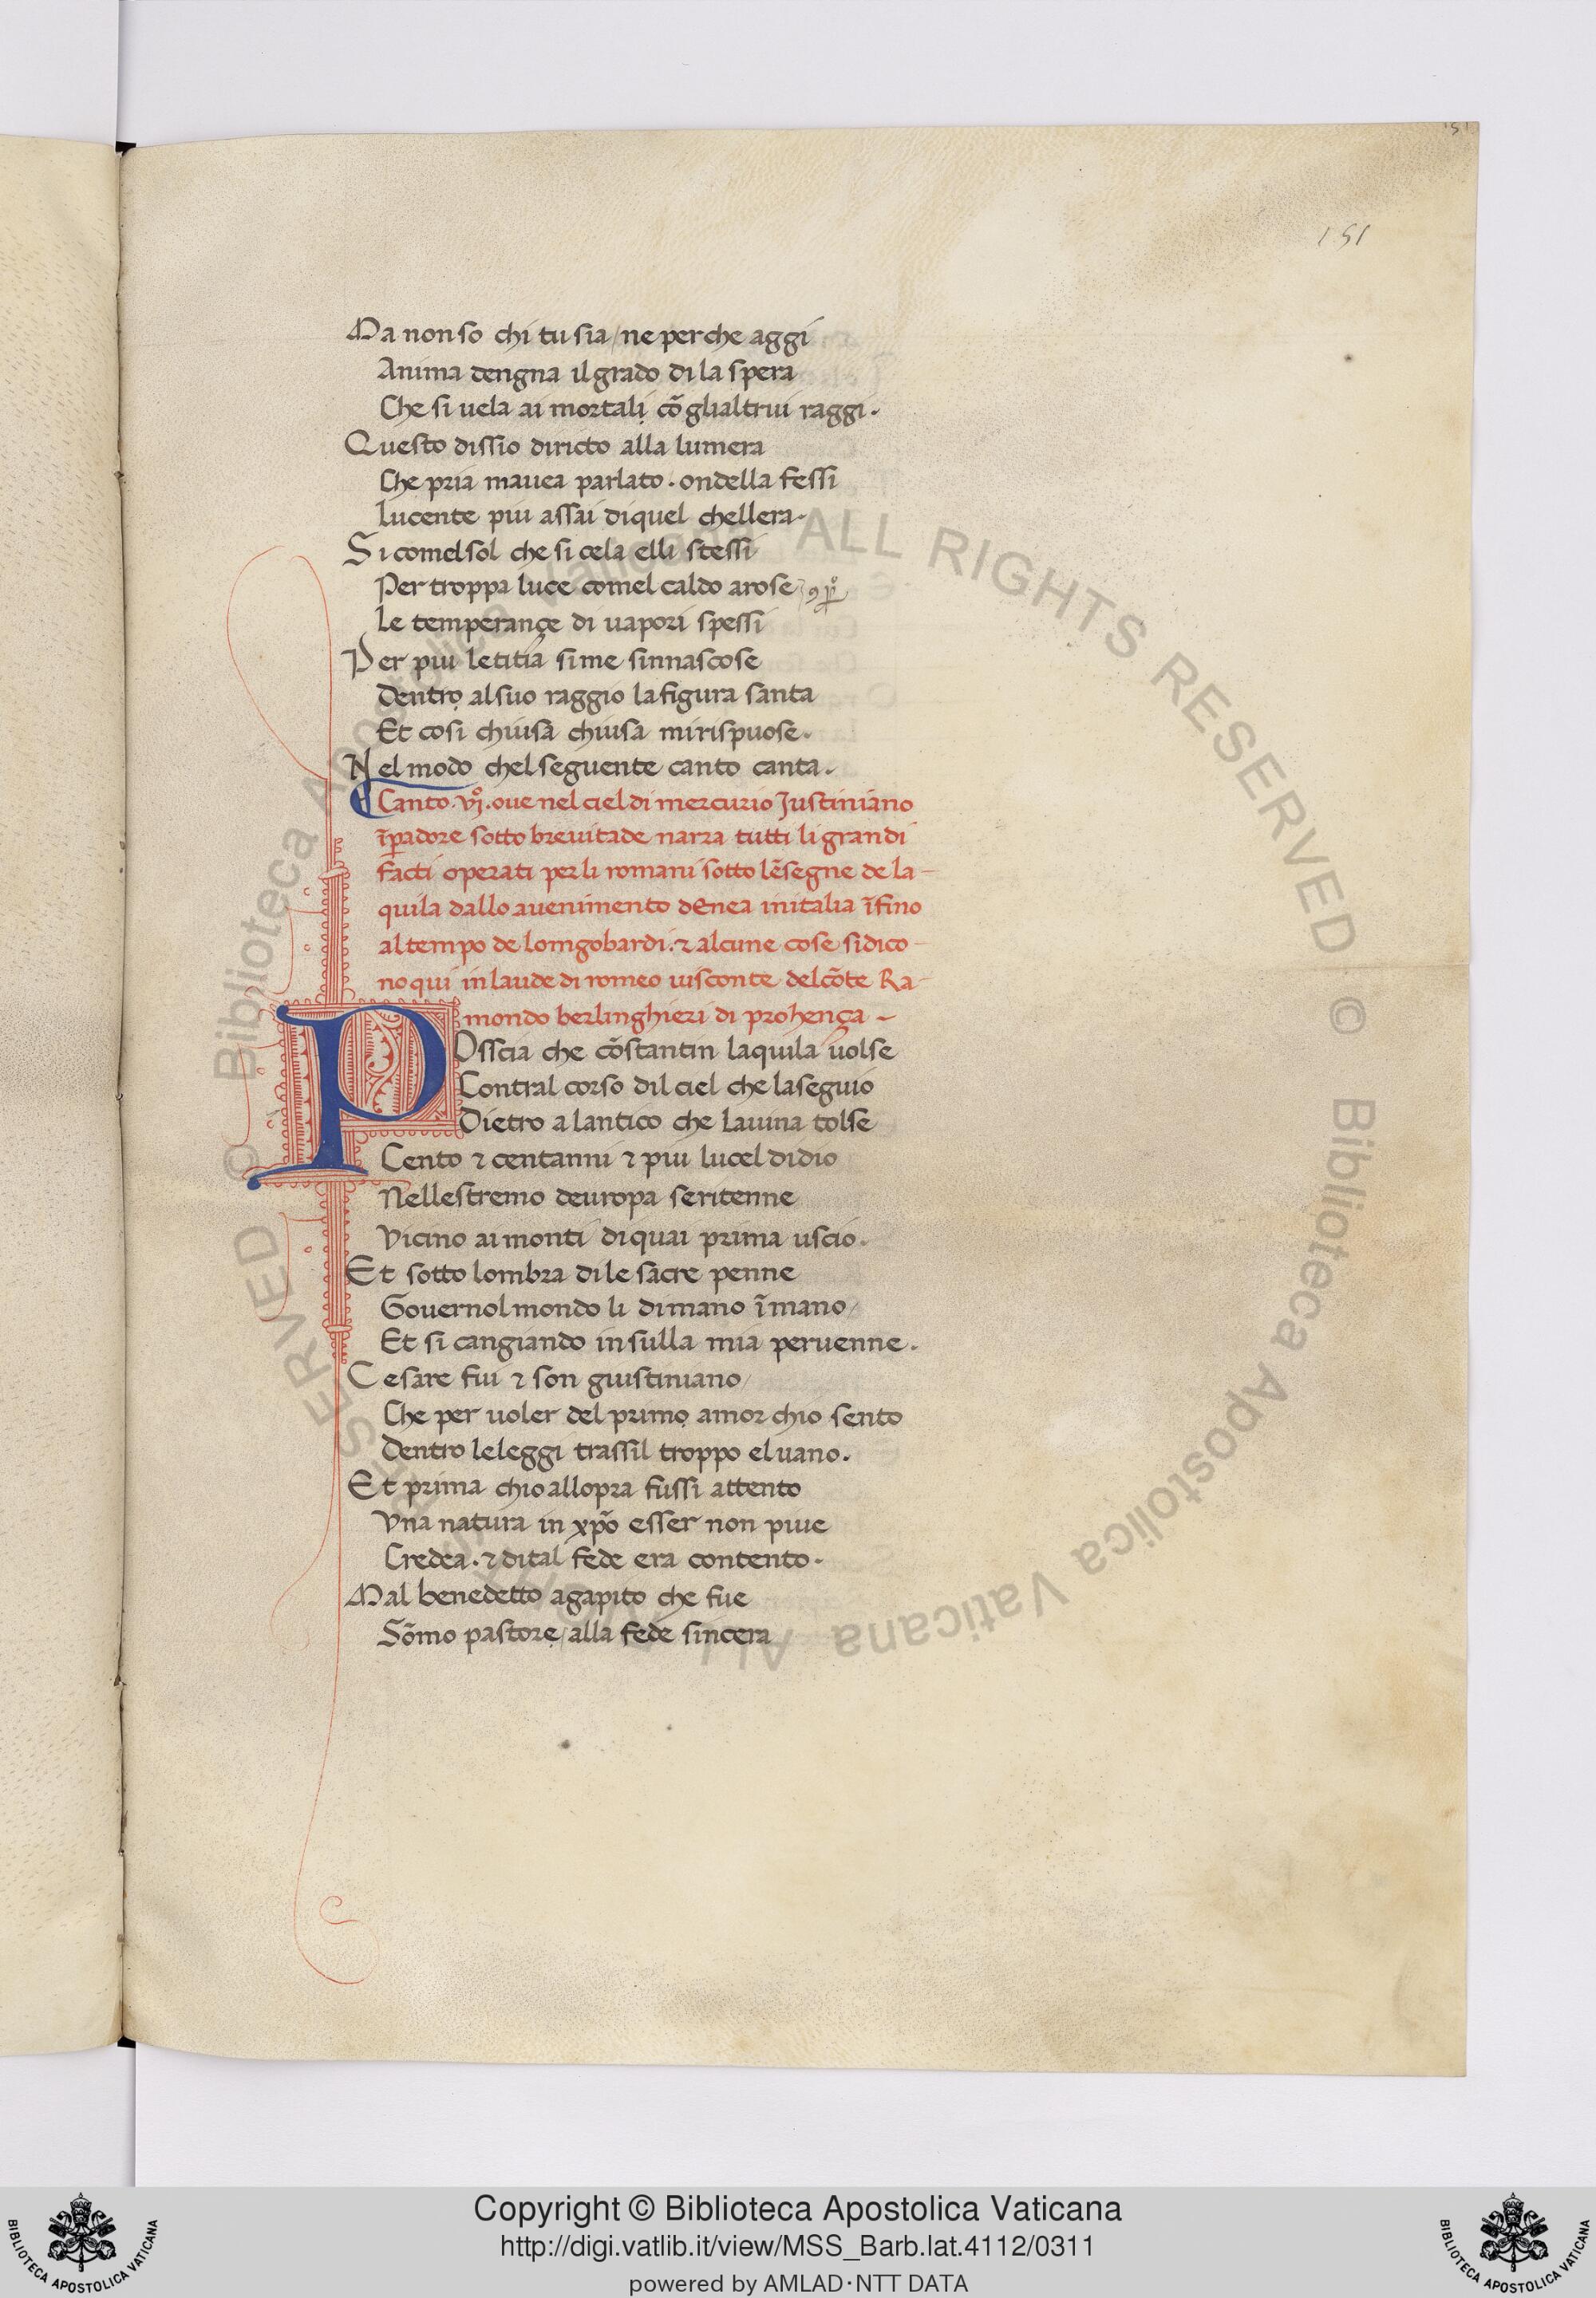 151
151
Ma non so chi tu sia / ne perche aggi
Anima dengna il grado di la spera
Che si uela ai mortalị cō gli altrui raggi.
Questo dissio diricto alla lumera
Che pria mauea parlato. ondella fessi
Lucente piu assai di quel chellera.
Si comel sol che si cela elli stessi
Per troppa luce comel caldo a rose
Le temperançe di uapori spessi
Per piu letitia si me sinnascose
Dentrọ al suo raggio la figura santa
Et cosi chiusa chiusa mi rispuose.
Nel modo chel seguente canto canta.
Canto. vjº. oue nel ciel di mercurio Justiniano
īpadore sotto breuitade narra tutti li grandi
facti operati per li romani sotto lēsegne de la-
quila dallo auenimento dEnea in italia īfino
al tempo de lomgobardi. ⁊ alcune cose si dico-
no qui in laude di romeo uisconte del cōte Ra-
mondo berlinghieri di prohença -
POsscia che cōstantin laquila uolse
Contral corso dil ciel che la seguio
Dietro a lantico che Lauina tolse
Cento ⁊ centanni ⁊ piu lucel didio
Nellestremo deuropa seritenne
Vicino ai monti di quai prima uscio.
Et sotto lombra di le sacre penne
Gouernol mondo li di mano ī mano/
Et si cangiando in sulla mia peruenne.
Cesare fui ⁊ son giustiniano/
Che per uoler del primọ amor chio sento
Dentro le leggi trassil troppo el uano.
Et prima chio allopra fussi attento
Vna natura in xp̄o esser non piue
Credea. ⁊ di tal fede era contento.
Mal benedetto agapito che fue
Sōmo pastorẹ / alla fede sincera
ALL RIGHTS RESERVED © Biblioteca Apostolica Vaticana ALL RIGHTS RESERVED © Biblioteca Apostolica Vaticana
Copyright © Biblioteca Apostolica Vaticana
http://digi.vatlib.it/view/MSS_Barb.lat.4112/0311
powered by AMLAD·NTT DATA
BIBLIOTECA APOSTOLICA VATICANA
BIBLIOTECA APOSTOLICA VATICANA